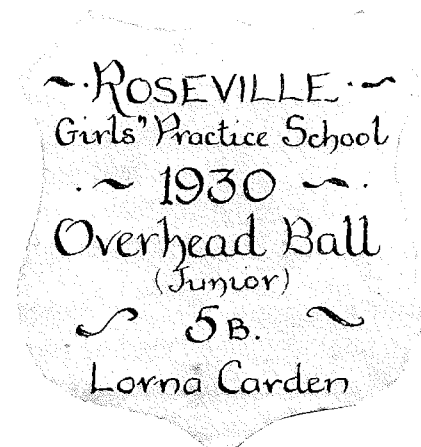 ~·ROSEVILLE·~
Girls" Practice School
·~ 1930 ~·
Overhead Ball
(Junior)
~ 5B. ~
Lorna Carden